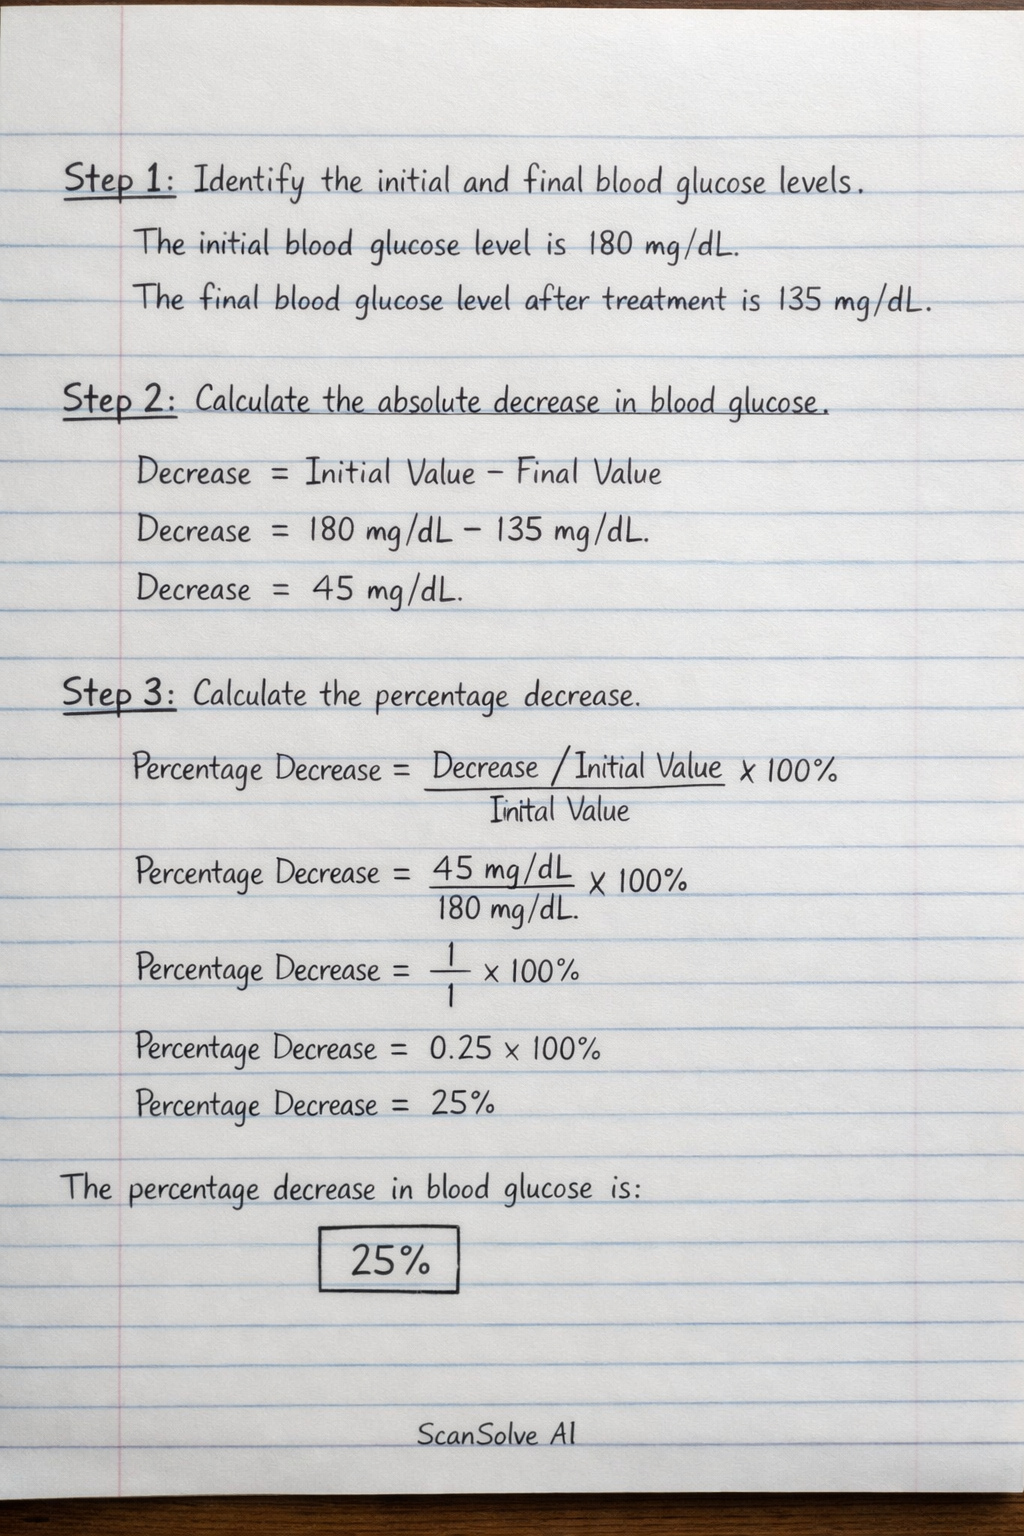 Step 1: Identify the initial and final blood glucose levels.
The initial blood glucose level is 180 mg/dL.
The final blood glucose level after treatment is 135 mg/dL.
Step 2: Calculate the absolute decrease in blood glucose.
Decrease = Initial Value – Final Value
Decrease = 180 mg/dL – 135 mg/dL.
Decrease = 45 mg/dL.
Step 3: Calculate the percentage decrease.
Percentage Decrease = Decrease / Initial Value x 100%
Inital Value
Percentage Decrease = 45 mg/dL x 100%
180 mg/dL.
Percentage Decrease = 1 x 100%
1
Percentage Decrease = 0.25 x 100%
Percentage Decrease = 25%
The percentage decrease in blood glucose is:
25%
ScanSolve AI